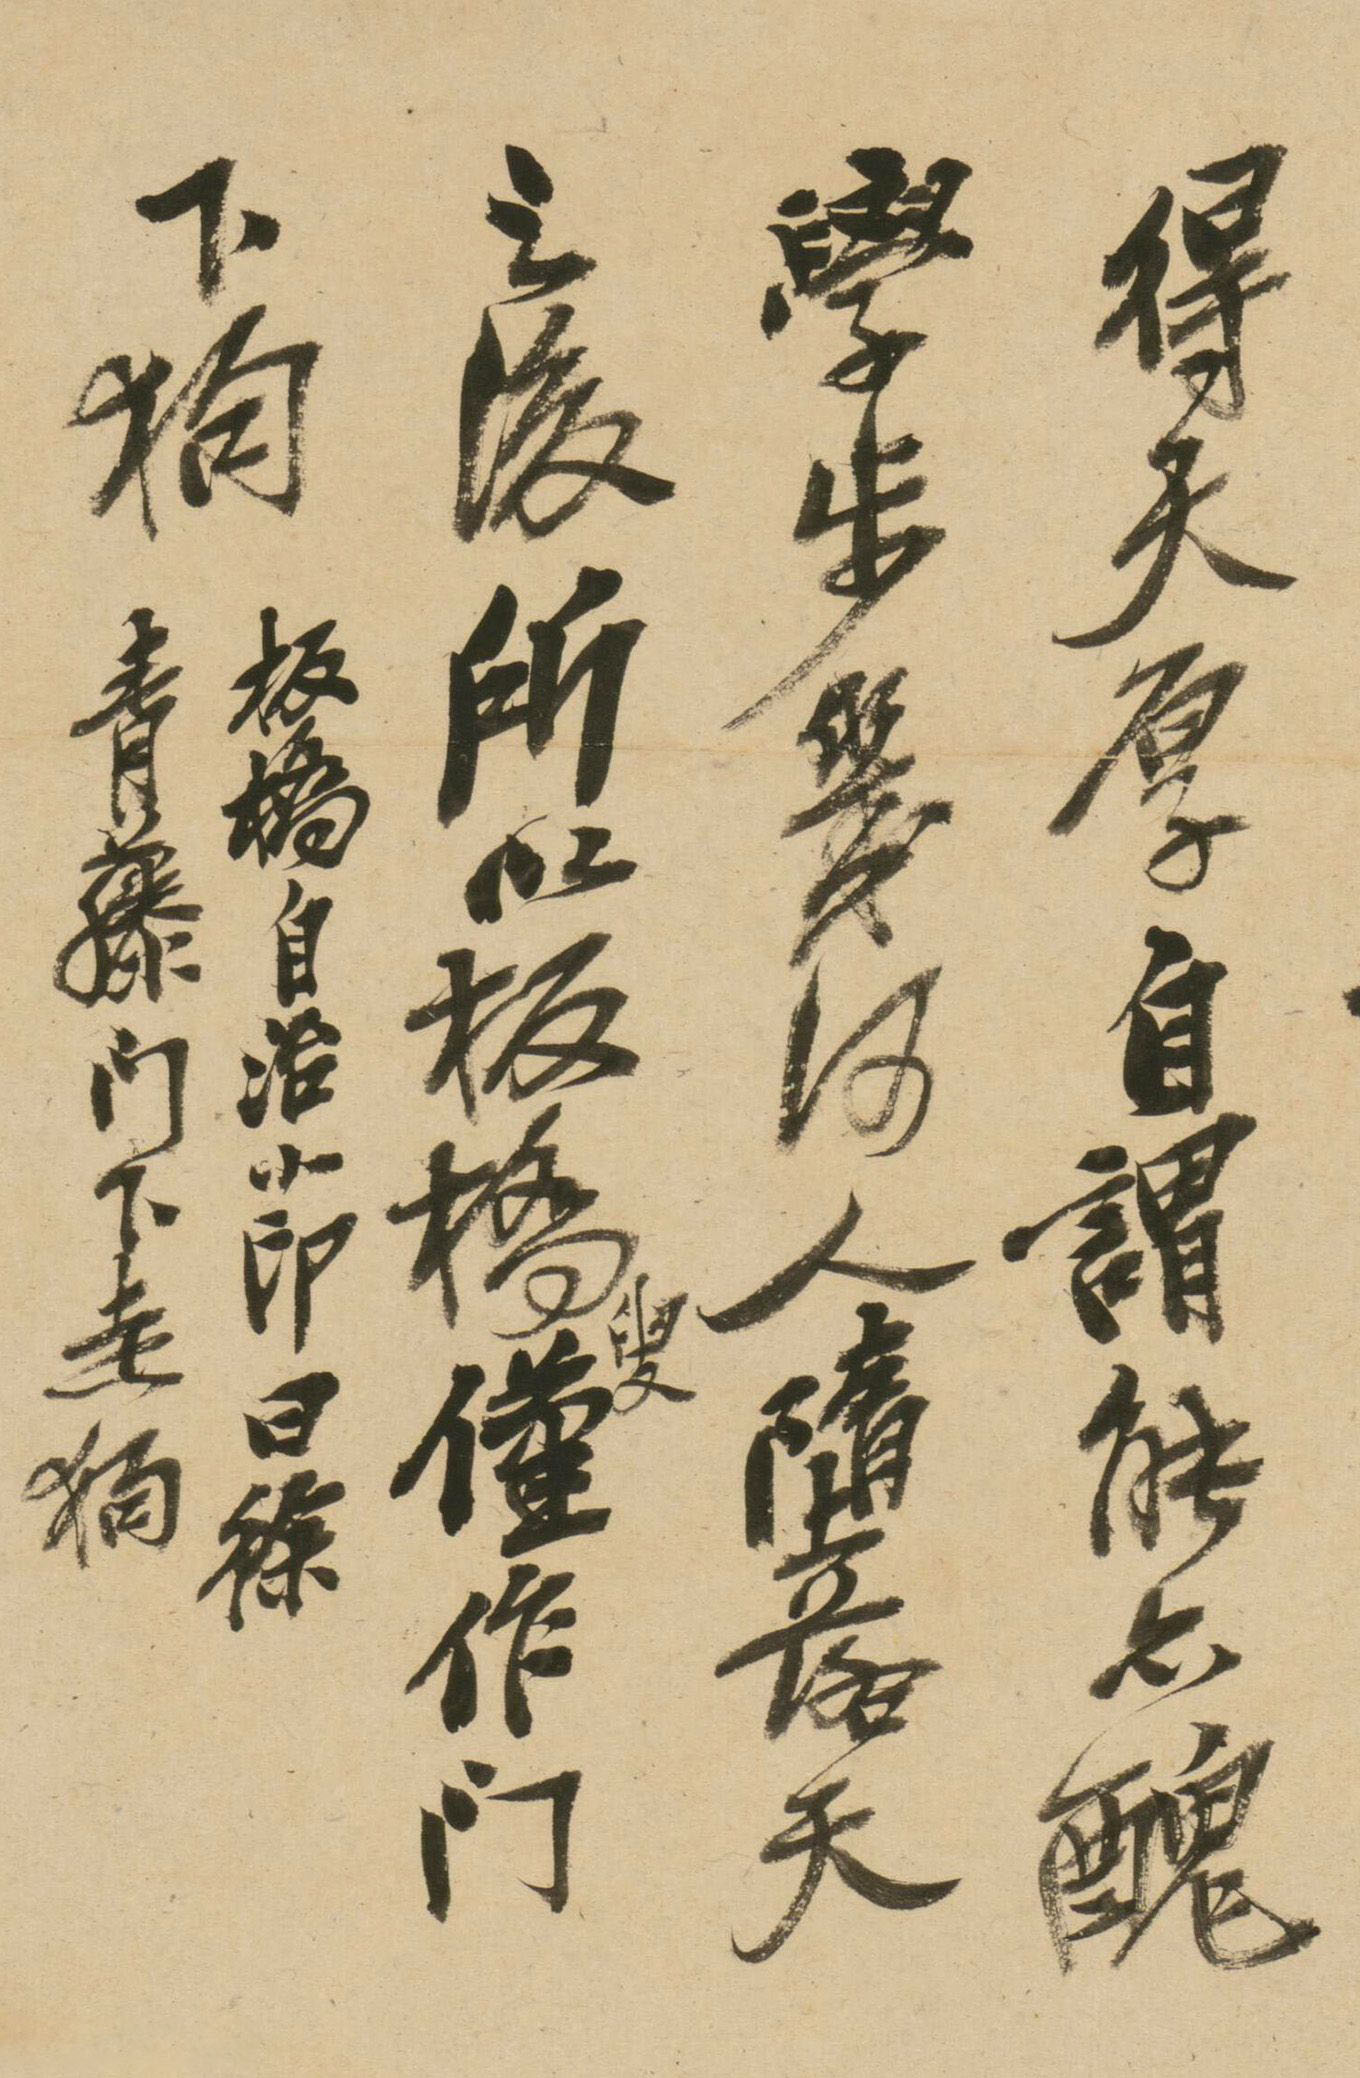 得天厚自謂能不醜
學步幾何人隨落天
之後所以板橋叟僅作門
下狗
板橋自治小印曰徐
青藤門下走狗